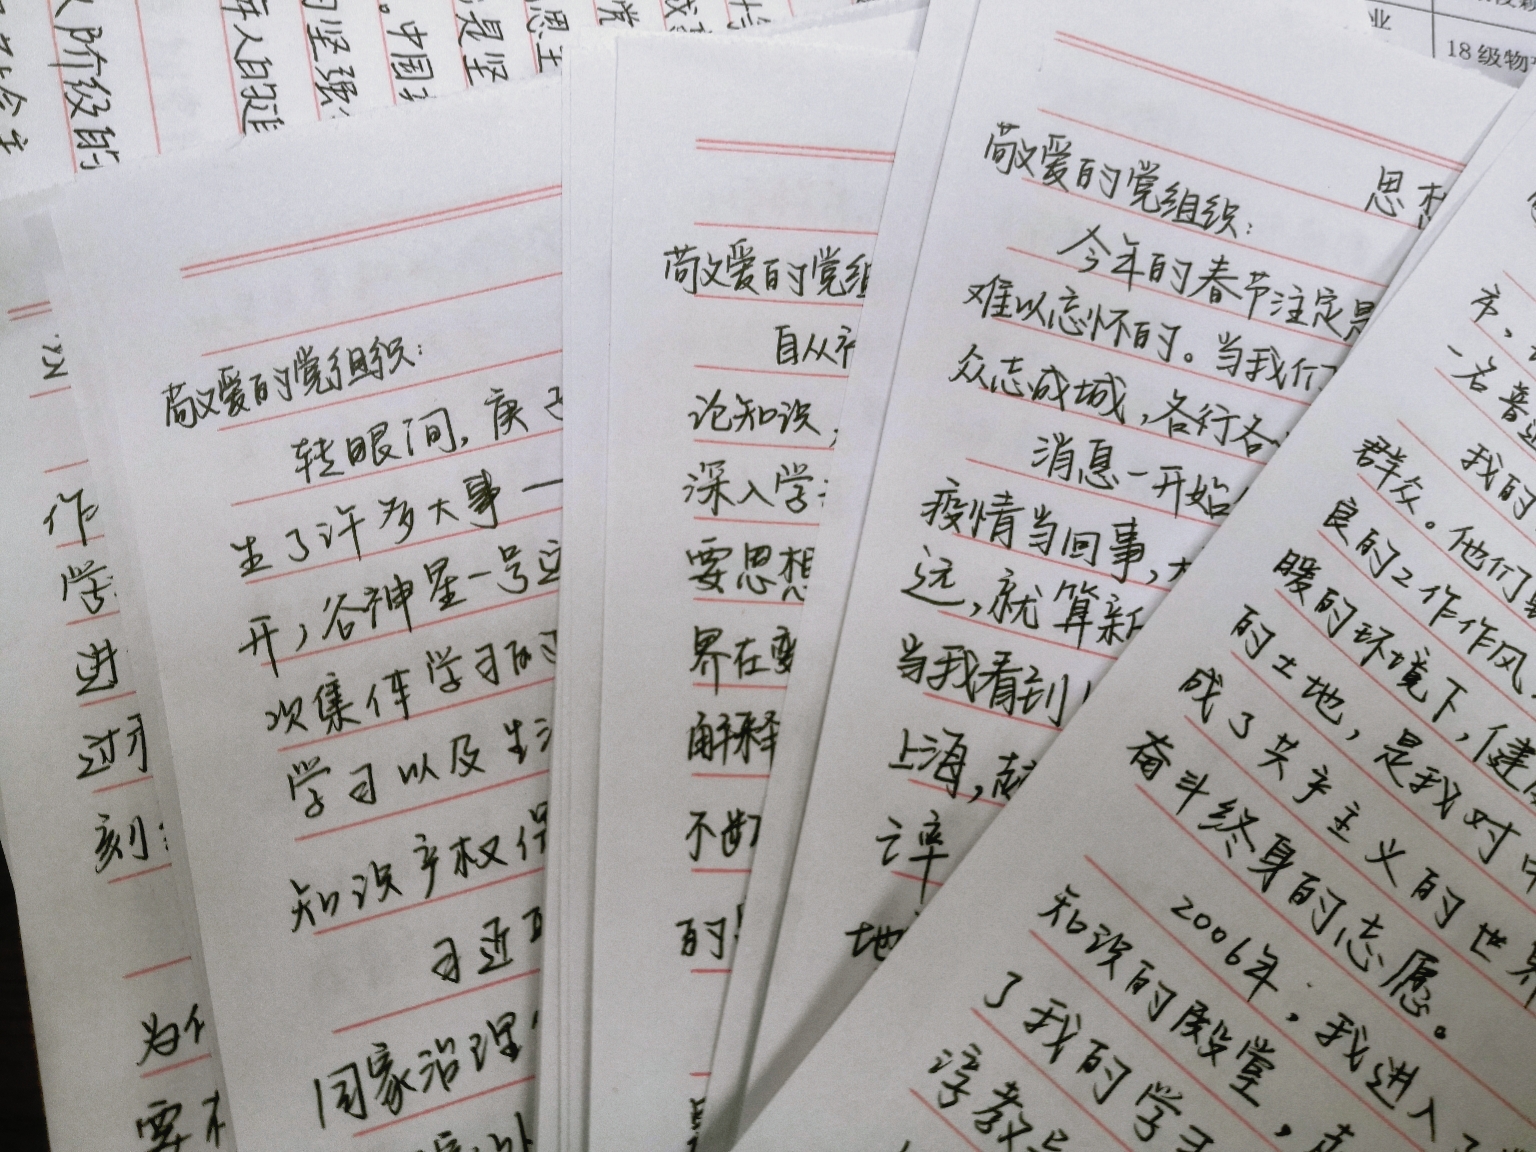 阶级的
的坚强
。中国
是坚
业
18级物
作
学
进
过
刻
为什
要
敬爱的党组织：
转眼间，庚子
生了许多大事一
开，谷神星一号
次集体学习时
学习以及生
知识产权保
习近
国家治理
敬爱的党组
自从
论知识，
深入学
要思想
界在变
解释
不断
的
思想
敬爱的党组织：
今年的春节注定是
难以忘怀的。当我们
众志成城，各行各
消息一开始
疫情当回事，
远，就算新
当我看到
上海，
谇
地
一名普通
我的
群众。他们
良的工作作风
暖的环境下，健
的土地，是我对中
成了共产主义的世界
奋斗终身的志愿。
2006年，我进入
知识的殿堂，
了我的学
谆教